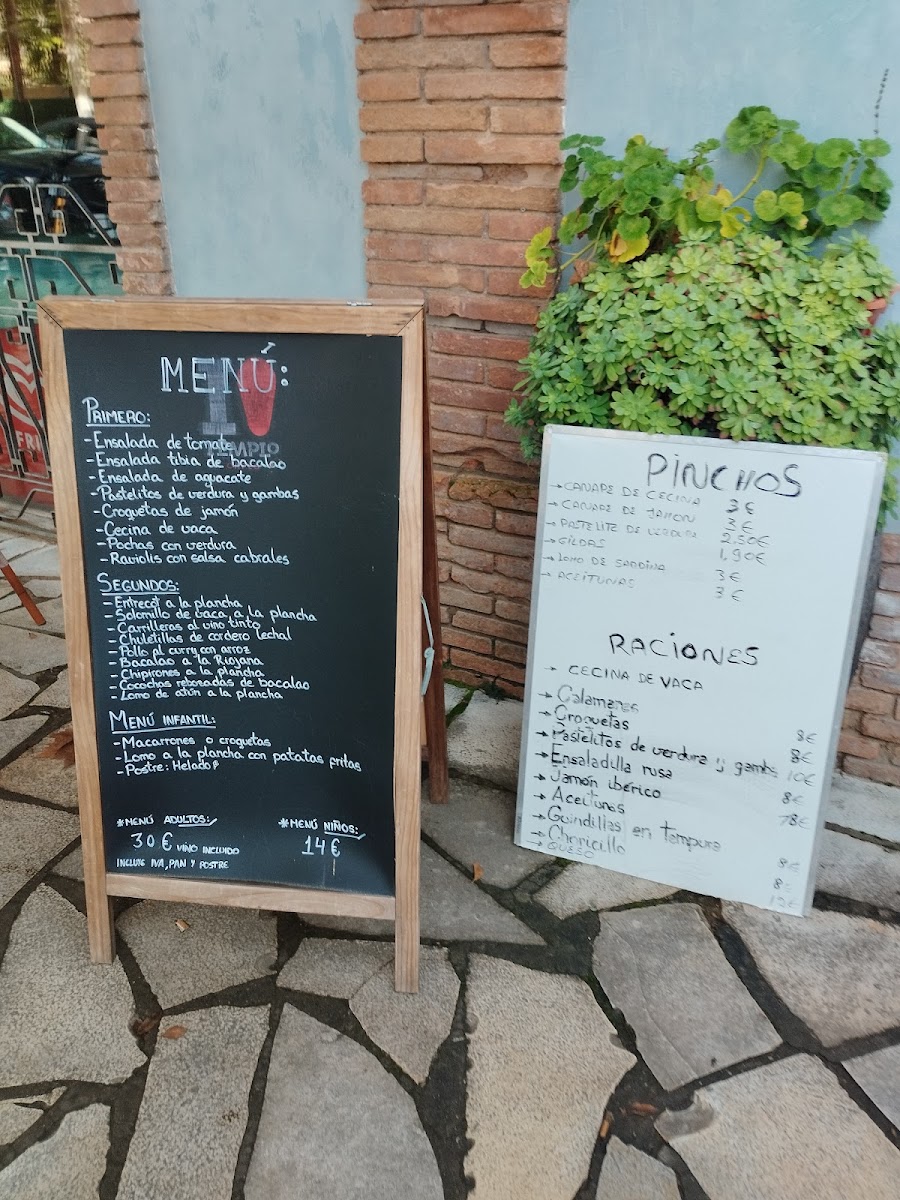 MENÚ:
TEMPIO
PRIMERO:
- Ensalada de tomate
- Ensalada tibia de bacalao
- Ensalada de aguacate
- Pastelitos de verdura y gambas
- Croquetas de jamón
- Cecina de vaca
- Pochas con verdura
- Raviolis con salsa cabrales
SEGUNDOS:
- Entrecot a la plancha
- Solomillo de vaca a la plancha
- Carrilleras al vino tinto
- Chuletillas de cordero lechal
- Pollo al curry con arroz
- Bacalao a la Riojana
- Chipirones a la plancha
- Cocochas rebozadas de bacalao
- Lomo de atún a la plancha
MENÚ INFANTIL:
- Macarrones o croquetas
- Lomo a la plancha con patatas fritas
- Postre: Helado
*MENÚ ADULTOS:
30€ VINO INCLUIDO
INCLUYE IVA, PAN Y POSTRE
*MENÚ NIÑOS:
14€
PINCHOS
→ CANAPE DE CECINA 3€
→ CANAPE DE JAMON 3€
→ PASTELITO DE VERDURA 2,50€
→ GILDAS 1,90€
→ LOMO DE SARDINA 3€
→ ACEITUNAS 3€
RACIONES
→ CECINA DE VACA
→ Calamares 8€
→ Croquetas 8€
→ Pastelitos de verdura y gambs 10€
→ Ensaladilla rusa 8€
→ Jamón ibérico 18€
→ Aceitunas
→ Guindillas en tempura 8€
→ Choricillo 8€
→ QUESO 12€
FRI